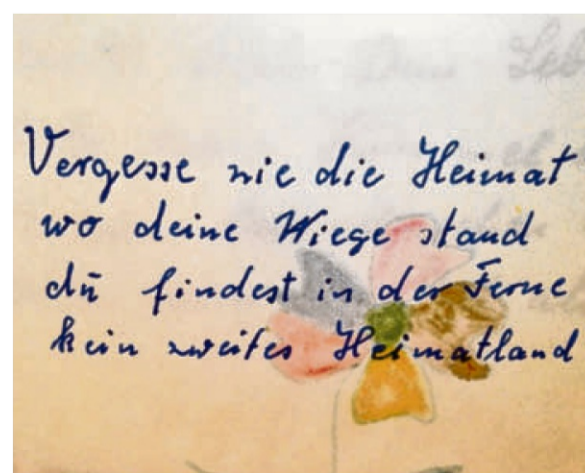 Vergesse nie die Heimat
wo deine Wiege stand
dū findest in der Ferne
kein zweites Heimatland